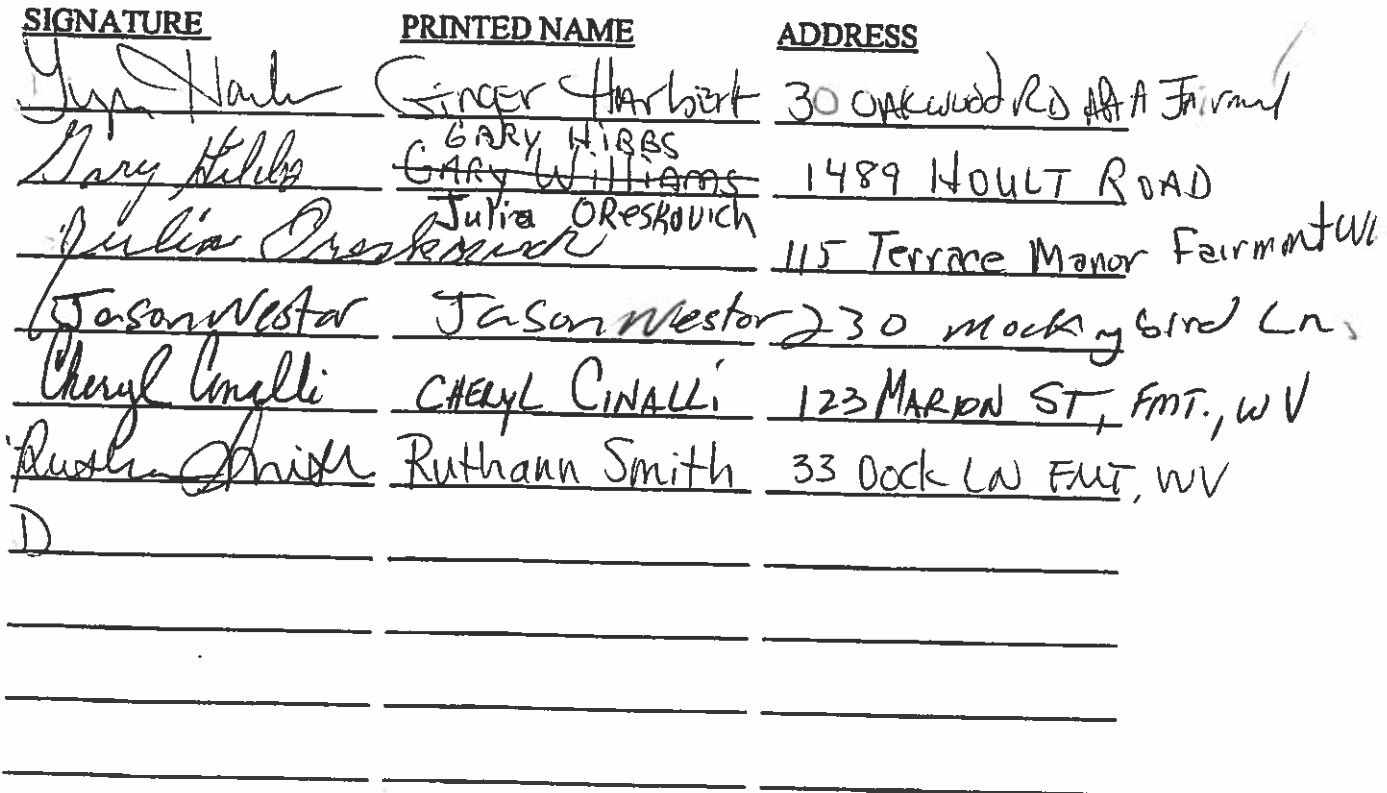 SIGNATURE PRINTED NAME ADDRESS
Ginger Harbert 30 Oakwood RD Apt A
GARY HIBBS
Gary Hibbs GARY Williams 1489 HOULT ROAD
Julia ORESKOVICH
Julia Oreskovich 115 Terrace Manor Fairmont WV
Jason Nestor Jason Nestor 230 mocking bird Ln.
Cheryl Cinalli CHERYL CINALLi 123 MARION ST, FMT., WV
Ruthann Smith Ruthann Smith 33 Dock LN FMT, WV
D